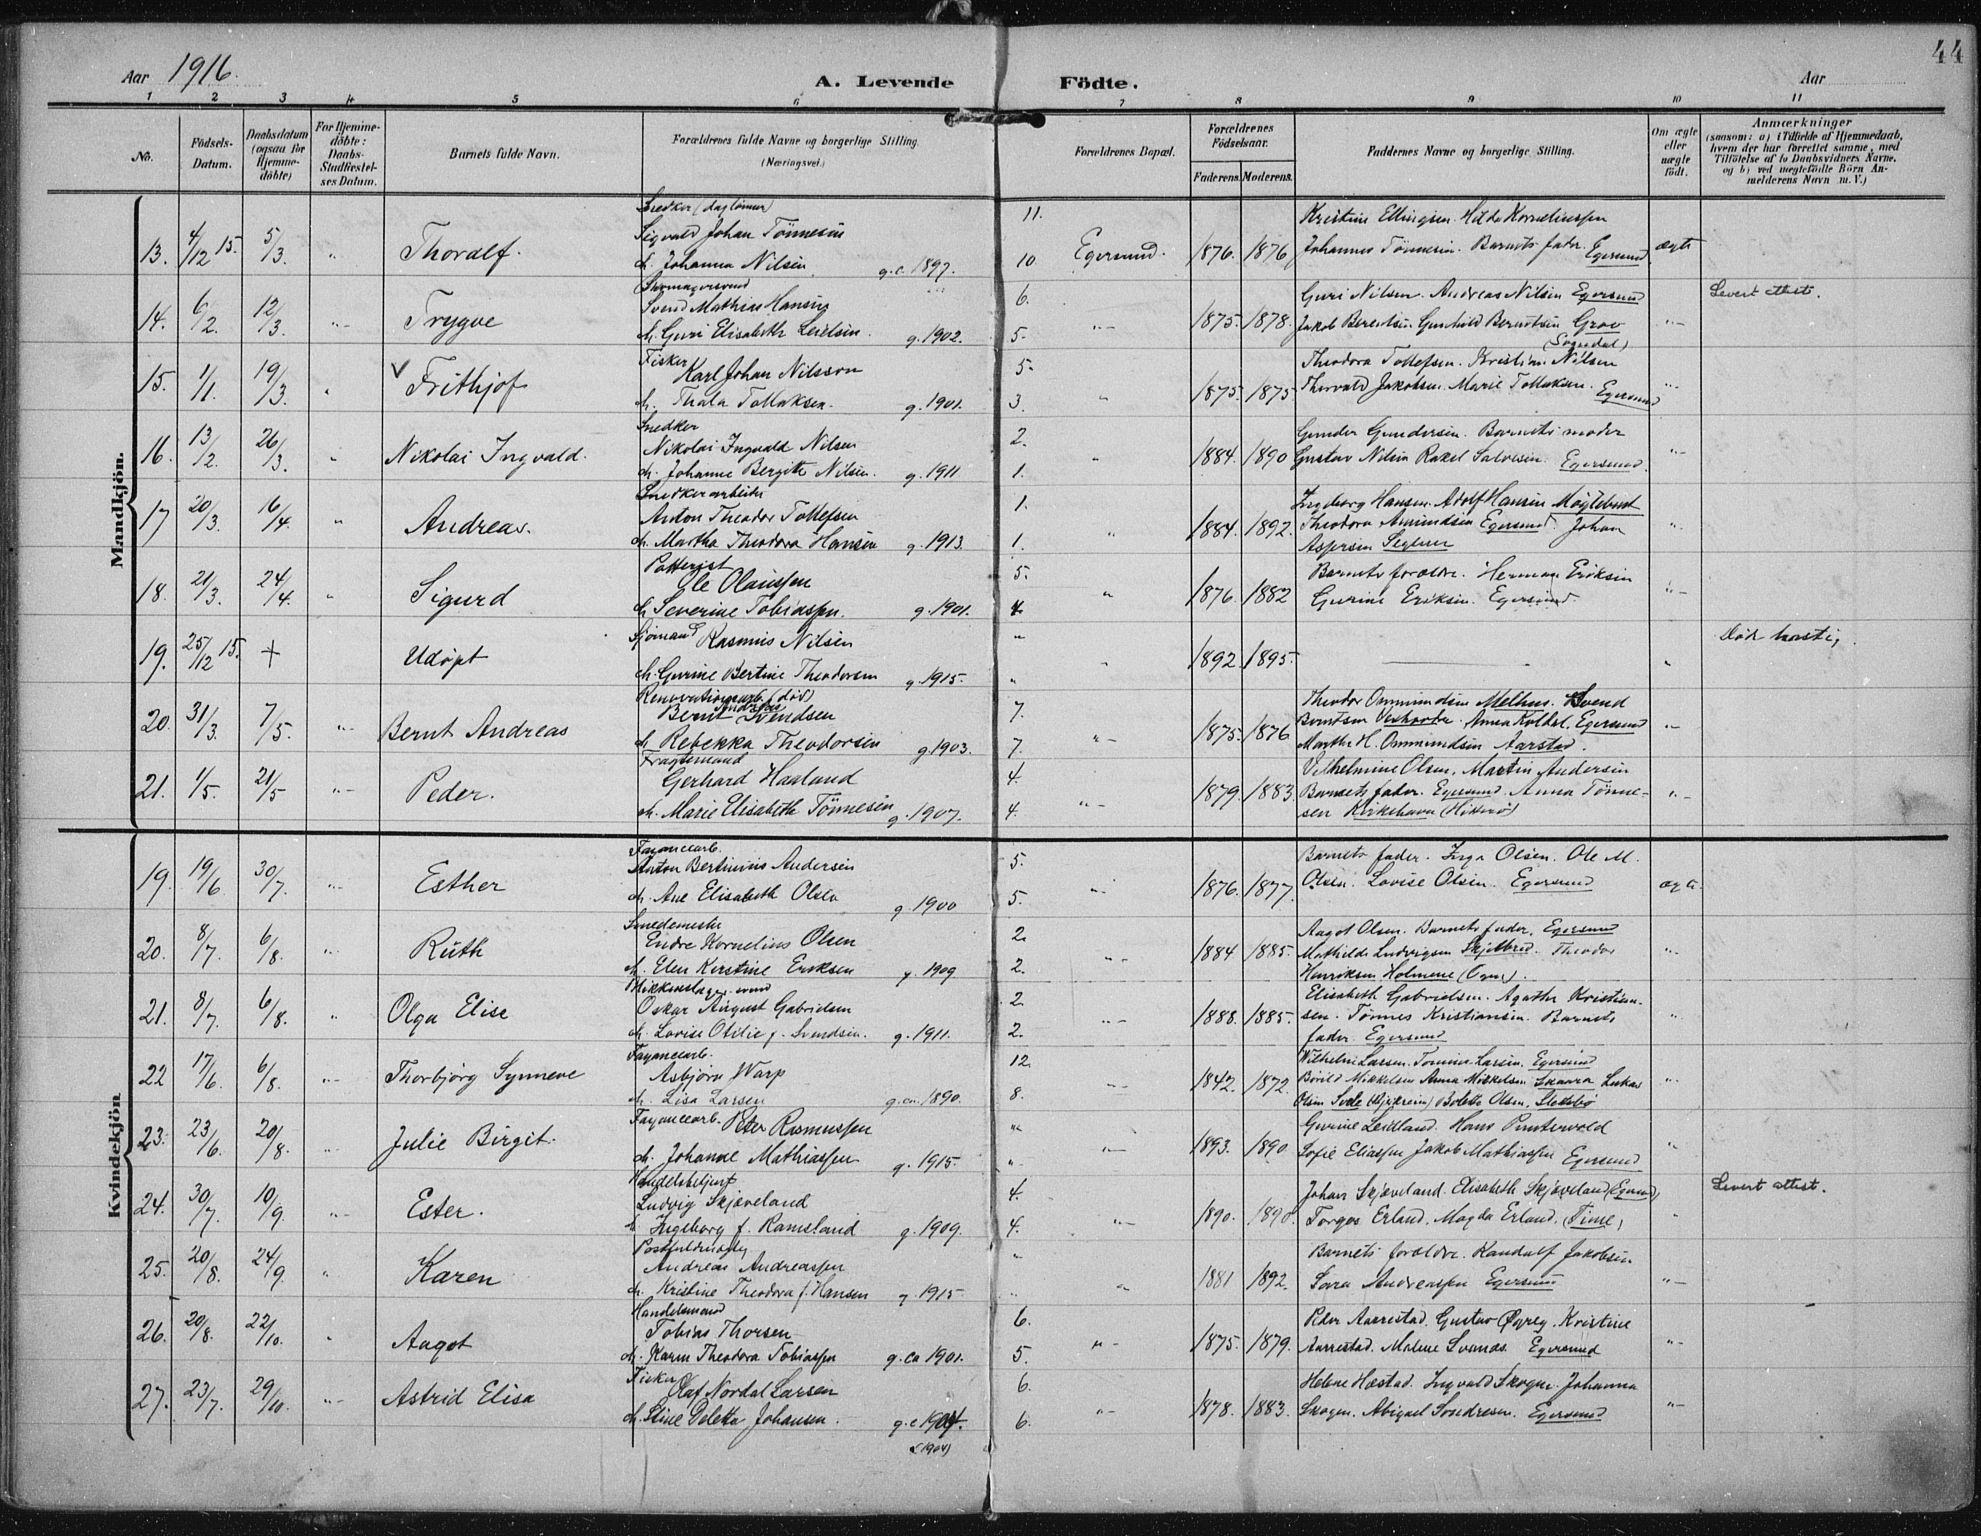 44
Aar 1916. A. Levende Födte. Aar
1 2 3 4 5 6 7 8 9 10 11
No. Födsels-Datum. Daabsdatum (ogsaa for Hjemme-döbte) For Hjemme-döbte: Daabs-Stadfæstel-ses Datum. Barnets fulde Navn. Forældrenes fulde Navne og borgerlige Stilling. (Næringsvei.) Forældrenes Bopæl. Forældrenes Födselsaar. Faderens. Moderens. Faddernes Navne og borgerlige Stilling. Om ægte eller uægte födt. Anmærkninger (saasom: a) i Tilfælde af Hjemmedaab, hvem der har forrettet samme, med Tilföielse af to Daabsvidners Navne. og b) ved uægtefödte Börn An-melderens Navn m. V.)
Mandkjön.
Snedker (daglønner) 11. Kristine Ellingsen. Hilda Korneliussen
13. 4/12 15. 5/3. " Thoralf. Sigvald Johan Tönnesen Egersund. 1876. 1876 Johannes Tönnesen. Barnets fader. Egersund ægte
h. Johanna Nilsen. g.c. 1897. 10
Skomagersvend
Svend Mathias Hansen 6. Guri Nilsen. Andreas Nilsen Egersund Levert attest.
14. 6/2. 12/3. "- Trygve h. Guri Elisabeth Leidlsen. g. 1902. 5. "- 1875. 1878. Jakob Berentsen. Gunhild Berentsen Grov (Sogndal) "-
Fisker
Karl Johan Nilsson 5. Theodora Tollefsen. Kristine Nilsen
15. 1/1. 19/3. " V Frithjof h. Thala Tollaksen. g. 1901. 3. " 1875. 1875 Thorvald Jakobsen. Marie Tollaksen. Egersund "-
Snedker
Nikolai Ingvald Nilsen 2. Gunder Gundersen. Barnets moder
16. 13/2. 26/3. " Nikolai Ingvald. h. Johanne Bergitte Nilsen. g. 1911 1. " 1884. 1890 Gustav Nilsen Rakel Salvesen. Egersund. "-
Snedkerarbeider
Anton Theodor Tollefsen 1. Ingeborg Hansen. Adolf Hansen Møgletvedt
17 20/3. 16/4. " Andreas. h. Martha Theodora Hansen g. 1913. 1. " 1884. 1892. Theodora Amundsen Egersund Johan
Aspersen
Potterist
Ole Olaussen 5. Barnets forældre. Herman Eriksen
18. 21/3. 24/4. " Sigurd h. Severine Tobiassen. g. 1901. 4. " 1876. 1882 Gurine Eriksen. Egersund. "-
Sjömand Rasmus Nilsen " Död hastig.
19. 25/12 15. + Udöpt h. Gurine Bertine Theodorsen g. 1915. " " 1892 1895. "
Renovationsarb. (död)
Bernt Andreas Svendsen 7. Theodor Ommundsen Melhus. Svend
20. 31/3. 7/5. "- Bernt Andreas h. Rebekka Theodorsen g. 1903. 7. "- 1875. 1876 Berntsen Anna Koldal. Egersund "-
Marthe H. Ommundsen Aarstad.
Fragtemand
Gerhard Haaland 4. Vilhelmine Olsen. Martin Andersen
21. 1/5. 21/5 "- Peder. h. Marie Elisabeth Tönnesen g. 1907. 4. "- 1879. 1883. Barnets fader. Egersund. Anna Tönne-
sen Kirkehavn (Hitterö) "-
Kvindekjön
Fayancearb.
Anton Bertinius Andersen 5. Barnets fader. Inga Olsen. Ole M.
19. 19/6. 30/7. "- Esther h. Ane Elisabeth Olsen g. 1900 5. "- 1876. 1877. Olsen. Lovise Olsen. Egersund ægte
Smedemester
Endre Kornelius Olsen 2. Aagot Olsen. Barnets fader. Egersund
20. 8/7. 6/8. " Ruth h. Elen Kirstine Eriksen g. 1909 2. "- 1884 1885. Mathilde Ludvigsen Skjelbred. Theodor
Henriksen Holmene (Ogna). "
Blikkenslagersvend
Oskar August Gabrielsen 2. Elisabeth Gabrielsen. Agathe Kristian-
21. 8/7. 6/8. " Olga Elise h. Lovise Otilie f. Svendsen. g. 1911. 2. "- 1888. 1885. sen. Tönnes Kristiansen. Barnets
fader. Egersund "
Fayancearb.
Asbjörn Warp 12. Wilhelm Larsen. Tomine Larsen. Egersund
22 17/6. 6/8. "- Thorbjörg Synneve h. Lisa Larsen g. ca. 1890. 8. "- 1842. 1872. Bovild Mikkelsen Anna Mikkelsen Skaara Lukas
Olsen Svele (Bjerkreim) Bolette Olsen. Slettebø "
Fayancearb. Peter Rasmussen " Gurine Leidland. Hans Puntervold
23. 23/6. 20/8. "- Julie Birgit. h. Johanne Mathiassen g. 1915. " "- 1893. 1890. Sofie Eliassen Jakob Mathiassen Egersund "
Handelsbetjent
Ludvig Skjæveland 4. Johan Skjæveland. Elisabeth Skjæveland (Egersund) Levert attest.
24. 30/7. 10/9. "- Ester. h. Ingeborg f. Ramsland g. 1909. 4. "- 1890. 1890. Torger Erland. Magda Erland. (Time) "
Andreas Andreassen " Barnets forældre. Randulf Jakobsen
25. 20/8. 24/9. " Karen h. Kristine Theodora f. Hansen g. 1915. " " 1881 1892. Sara Andreassen Egersund "-
Handelsmand
Tobias Thorsen 6. Peder Aarrestad. Gustav Øgrey. Kristine
26. 20/8. 22/10. " Aagot h. Karen Theodora Tobiassen g. ca 1901. 5. "- 1875. 1879. Aarrestad. Malene Svanes. Egersund "-
Fisker
Olaf Nordal Larsen 6. Helene Hæstad. Ingvald Skogen. Johanna
27. 23/7. 29/10. "- Astrid Elisa h. Stine Deletta Johansen. g. c 1904. 6. "- 1878. 1883. Skogen. Abigael Sondresen. Egersund "-
(1904)